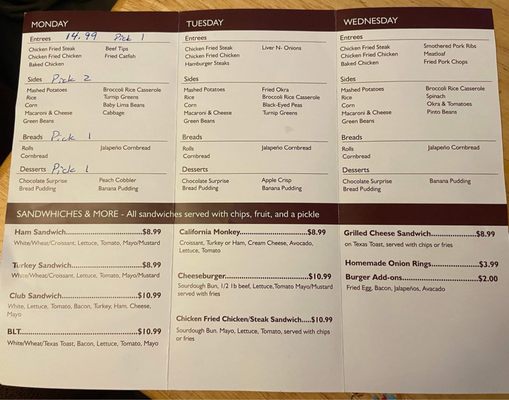 MONDAY
Entrees 14.99 Pick 1
Chicken Fried Steak Beef Tips
Chicken Fried Chicken Fried Catfish
Baked Chicken
Sides Pick 2
Mashed Potatoes Broccoli Rice Casserole
Rice Turnip Greens
Corn Baby Lima Beans
Macaroni & Cheese Cabbage
Green Beans
Breads Pick 1
Rolls Jalapeño Cornbread
Cornbread
Desserts Pick 1
Chocolate Surprise Peach Cobbler
Bread Pudding Banana Pudding
TUESDAY
Entrees
Chicken Fried Steak Liver N- Onions
Chicken Fried Chicken
Hamburger Steaks
Sides
Mashed Potatoes Fried Okra
Rice Broccoli Rice Casserole
Corn Black-Eyed Peas
Macaroni & Cheese Turnip Greens
Green Beans
Breads
Rolls Jalapeño Cornbread
Cornbread
Desserts
Chocolate Surprise Apple Crisp
Bread Pudding Banana Pudding
WEDNESDAY
Entrees
Chicken Fried Steak Smothered Pork Ribs
Chicken Fried Chicken Meatloaf
Baked Chicken Fried Pork Chops
Sides
Mashed Potatoes Broccoli Rice Casserole
Rice Spinach
Corn Okra & Tomatoes
Macaroni & Cheese Pinto Beans
Green Beans
Breads
Rolls Jalapeño Cornbread
Cornbread
Desserts
Chocolate Surprise Banana Pudding
Bread Pudding
SANDWHICHES & MORE - All sandwiches served with chips, fruit, and a pickle
Ham Sandwich....................$8.99
White/Wheat/Croissant, Lettuce, Tomato, Mayo/Mustard
Turkey Sandwich....................$8.99
White/Wheat/Croissant, Lettuce, Tomato, Mayo/Mustard
Club Sandwich....................$10.99
White, Lettuce, Tomato, Bacon, Turkey, Ham, Cheese,
Mayo
BLT....................$10.99
White/Wheat/Texas Toast, Bacon, Lettuce, Tomato, Mayo
California Monkey....................$8.99
Croissant, Turkey or Ham, Cream Cheese, Avocado,
Lettuce, Tomato
Cheeseburger....................$10.99
Sourdough Bun, 1/2 lb beef, Lettuce,Tomato Mayo/Mustard
served with fries
Chicken Fried Chicken/Steak Sandwich.....$10.99
Sourdough Bun, Mayo, Lettuce, Tomato, served with chips
or fries
Grilled Cheese Sandwich....................$8.99
on Texas Toast, served with chips or fries
Homemade Onion Rings....................$3.99
Burger Add-ons....................$2.00
Fried Egg, Bacon, Jalapeños, Avacado